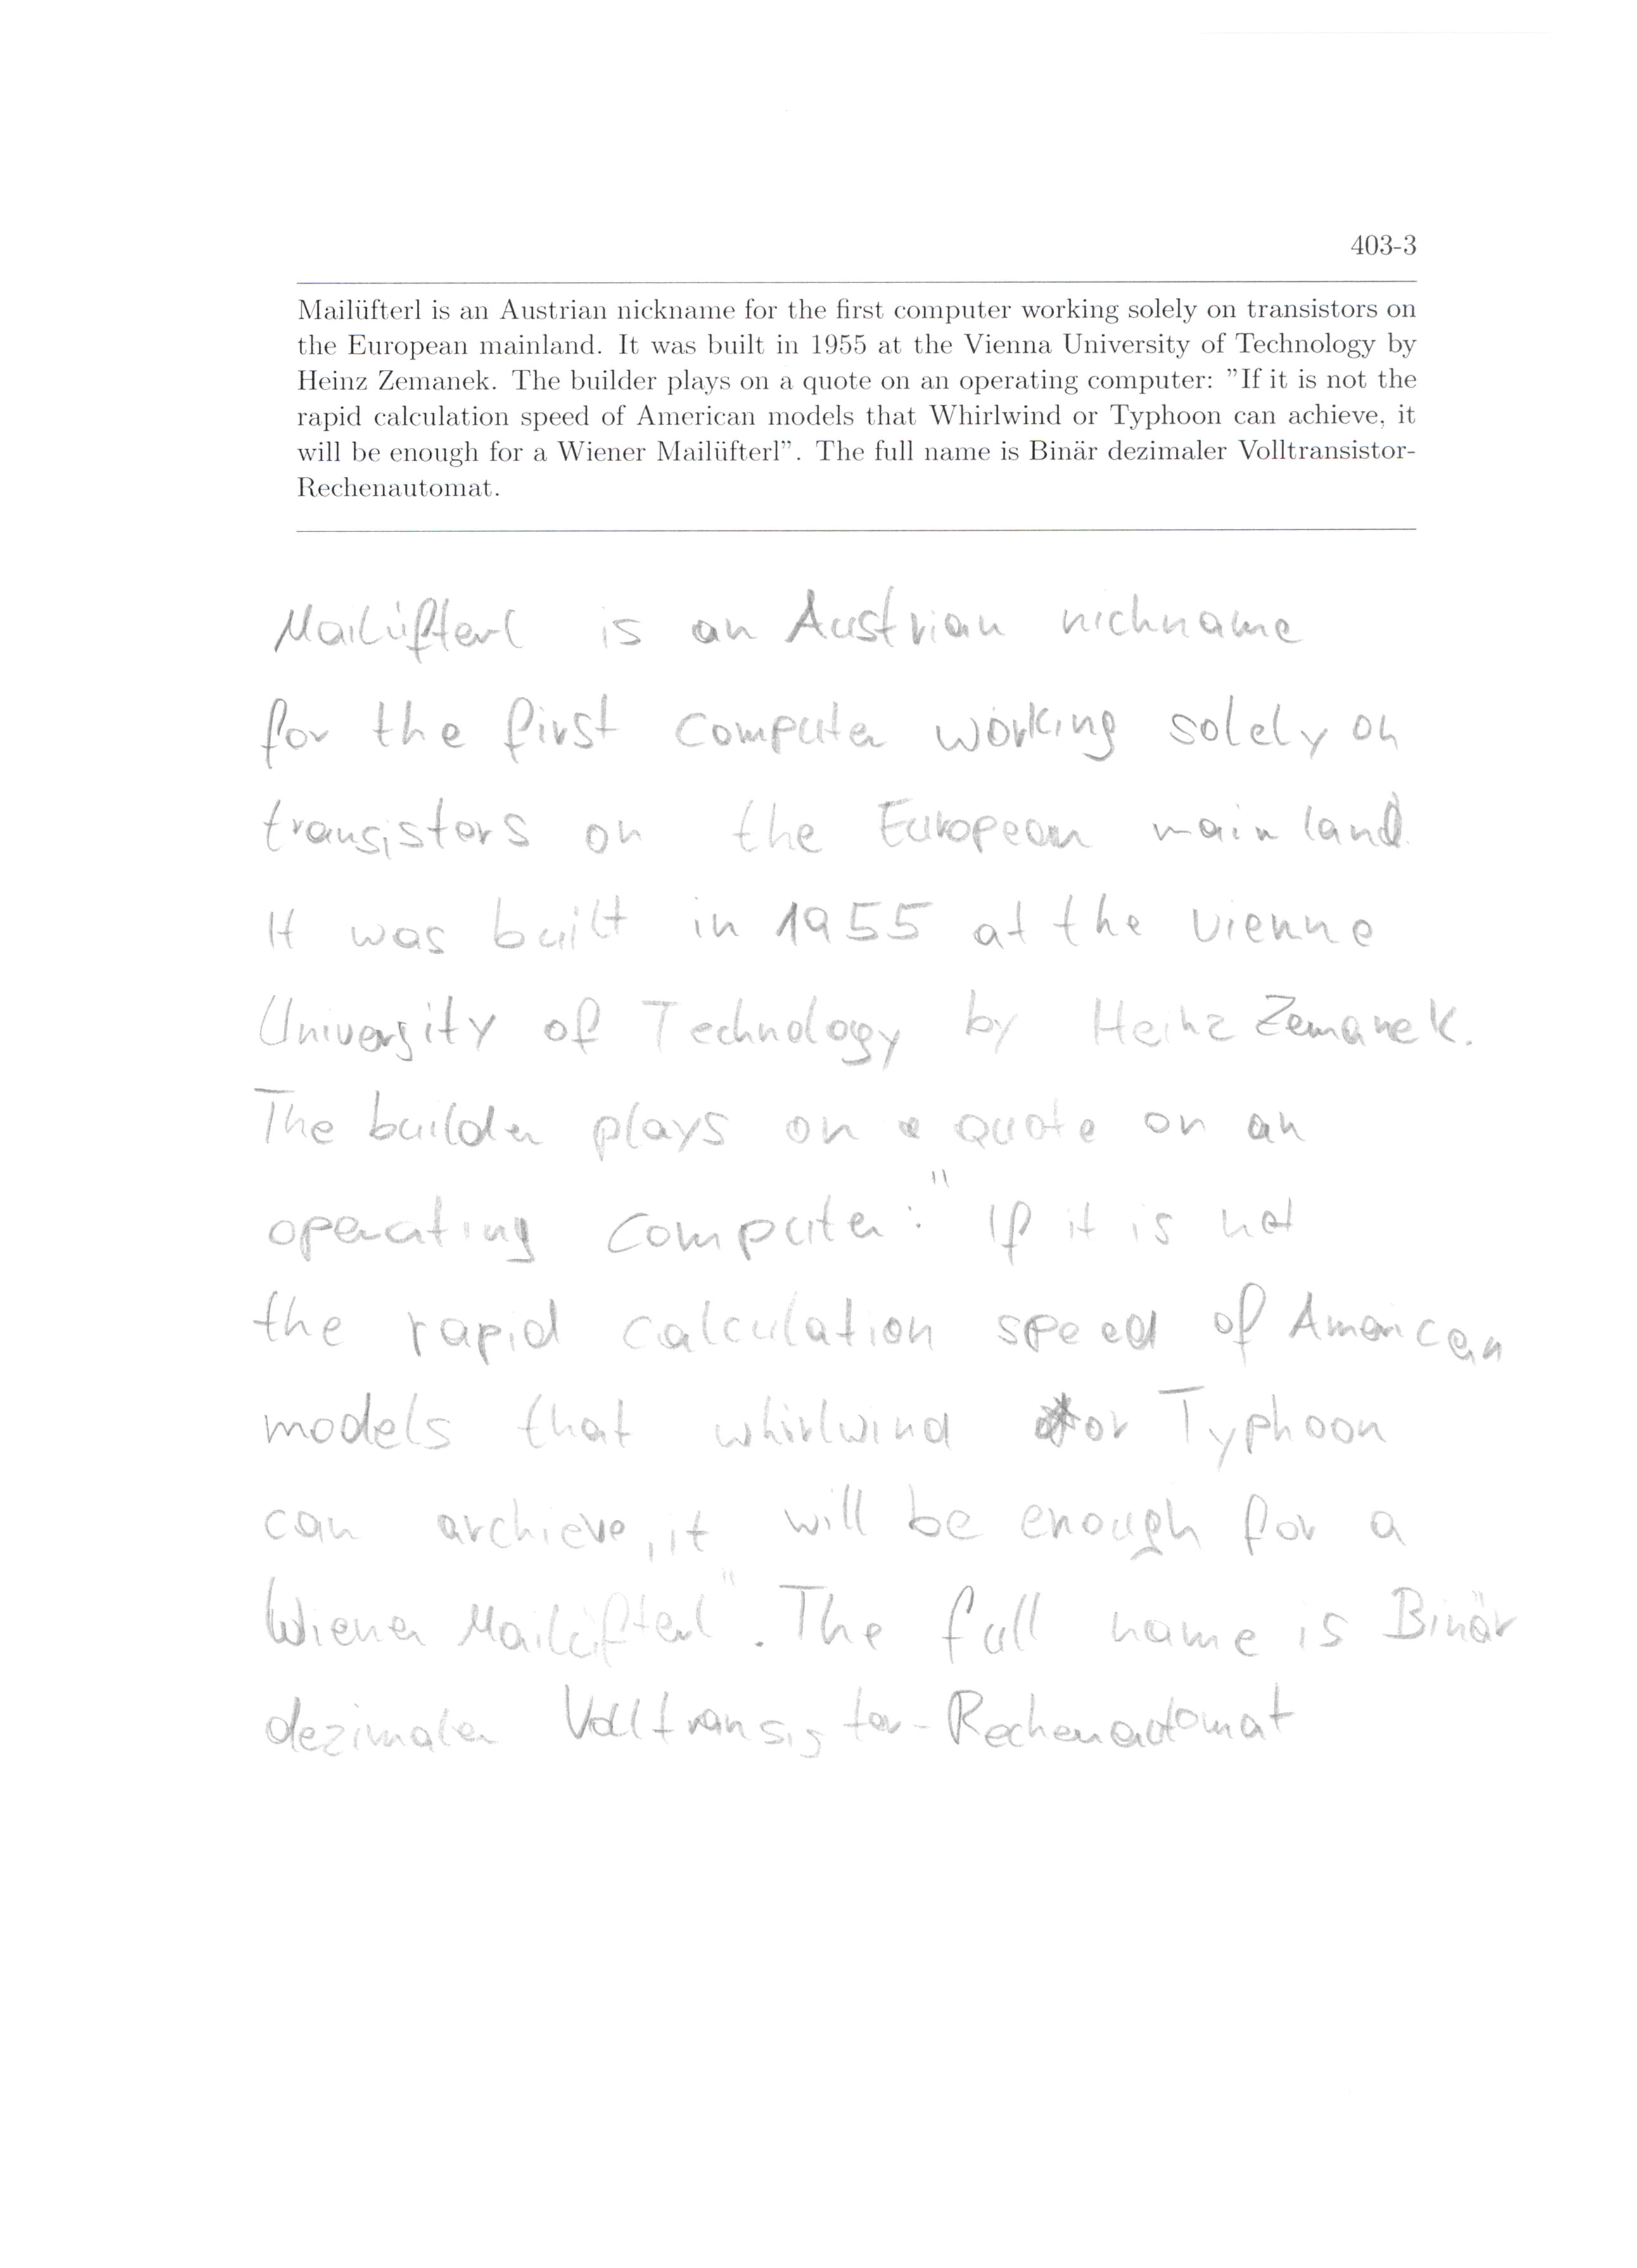 403-3
Mailüfterl is an Austrian nickname for the first computer working solely on transistors on
the European mainland. It was built in 1955 at the Vienna University of Technology by
Heinz Zemanek. The builder plays on a quote on an operating computer: ”If it is not the
rapid calculation speed of American models that Whirlwind or Typhoon can achieve, it
will be enough for a Wiener Mailüfterl”. The full name is Binär dezimaler Volltransistor-
Rechenautomat.
Mailüfterl is an Austrian nichname
for the first computer working solely on
transistors on the European mainland.
It was built in 1955 at the Vienne
University of Technology by Heinz Zemanek.
The builder plays on a quote on an
operating computer: "If it is not
the rapid calculation speed of American
models that whirlwind or Typhoon
can archieve, it will be enough for a
Wiener Mailüfterl". The full name is Binär
dezimaler Volltransistor-Rechenautomat